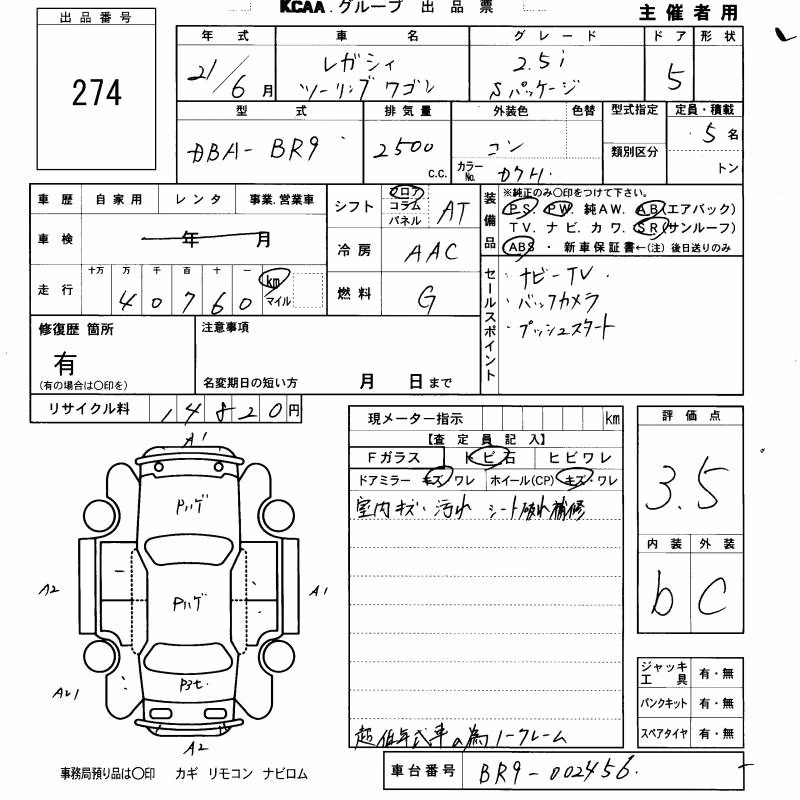 KCAA.グループ 出品票
主催者用
出品番号
274
年式 車名 グレード ドア 形状
21/6月 レガシィ ツーリングワゴン 2.5i Sパッケージ 5
型式 排気量 外装色 色替 型式指定 定員・積載
DBA-BR9 2500 C.C. コン 類別区分 5名
カラーNo. D7H. トン
車歴 自家用 レンタ 事業.営業車
シフト フロア コラム パネル AT
装備品 ※純正のみ○印をつけて下さい。
PS. PW. 純AW. AB(エアバック)
TV. ナビ. カワ. SR(サンルーフ)
ABS ・ 新車保証書←(注)後日送りのみ
車検 年 月
冷房 AAC
走行 十万 万 千 百 十 一 km マイル
40760
燃料 G
セールスポイント
・ナビーTV.
・バックカメラ
・プッシュスタート
修復歴 箇所
有
(有の場合は○印を)
注意事項
名変期日の短い方 月 日まで
リサイクル料 14820円
現メーター指示 km
【査定員記入】
Fガラス トビ石 ヒビワレ
ドアミラー キズ・ワレ ホイール(CP) キズ・ワレ
室内キズ・汚れ シート破れ補修
超低年式車の為ノークレーム
車台番号 BR9-002456
評価点
3.5
内装 外装
b C
ジャッキ工具 有・無
パンクキット 有・無
スペアタイヤ 有・無
A1
Pハゲ
A2
Pハゲ
A1
Aw1
A2
事務局預り品は○印 カギ リモコン ナビロム